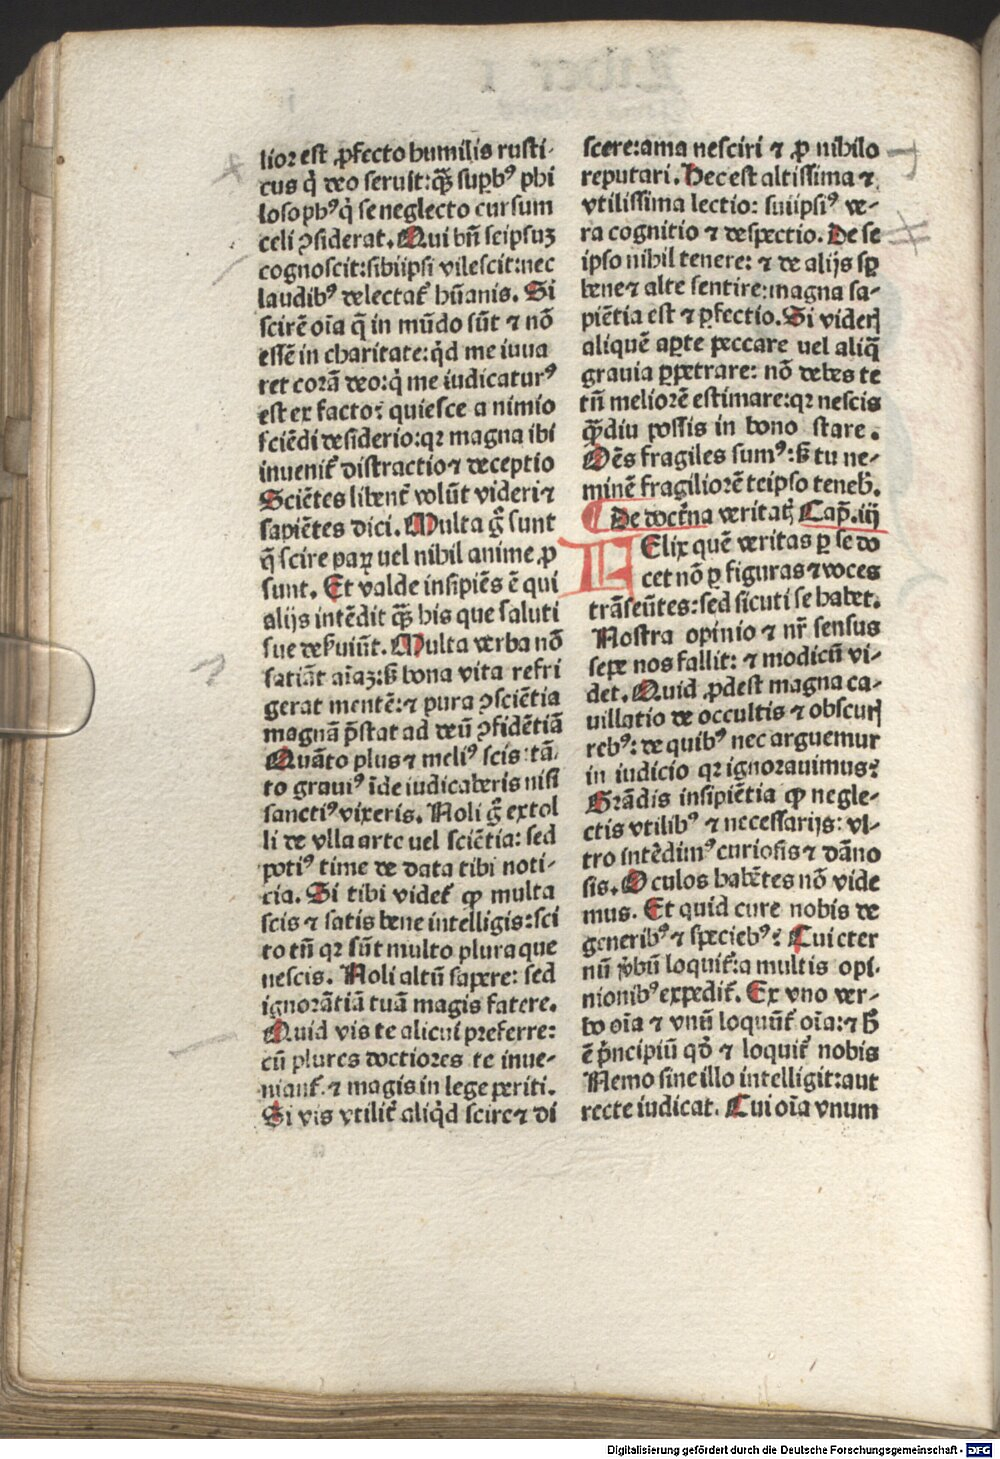 lior est ꝓfecto humilis rusti-
cus q̇ deo seruit: qꝫ̄ suꝑbꝰ phi
losophꝰ q̇ se neglecto cursum
celi ꝯsiderat. Qui bn̄ seipsuꝫ
cognoscit: sibiipsi vilescit: nec
laudibꝰ delectat᷑ hūanis. Si
scirē oīa q̄ in mūdo sūt ⁊ nō
essē in charitate: qͥd me iuua
ret corā deo: q̇ me iudicaturꝰ
est ex facto? quiesce a nimio
sciēdi desiderio: qꝛ magna ibi
inuenit᷑ distractio ⁊ deceptio
Sciētes libent᷑ volūt videri ⁊
sapiētes dici. Multa g̊ sunt
q̄ scire paꝝ uel nihil anime ꝓ
sunt. Et valde insipiēs ē qui
alijs intēdit qꝫ̄ his que saluti
sue deẜuiūt. Multa verba nō
satiāt aīaꝫ: ẜ bona vita refri
gerat mentē: ⁊ pura ꝯsciētia
magnā p̄stat ad deū ꝯfidētiā
Quāto plus ⁊ meliꝰ scis: tā-
to grauiꝰ īde iudicaberis nisi
sanctiꝰ vixeris. Noli g̊ extol
li de vlla arte uel sciētia: sed
potiꝰ time de data tibi noti-
cia. Si tibi videt᷑ ꝙ multa
scis ⁊ satis bene intelligis: sci
to tn̄ qꝛ sūt multo plura que
nescis. Noli altū sapere: sed
ignorātiā tuā magis fatere.
Quid vis te alicui preferre:
cū plures doctiores te inue-
niant᷑ ⁊ magis in lege periti.
Si vis vtilit᷑ aliqͥd scire ⁊ di
scere: ama nesciri ⁊ ꝓ nihilo
reputari. Hec est altissima ⁊
vtilissima lectio: suiipsiꝰ ve-
ra cognitio ⁊ despectio. De se
ipso nihil tenere: ⁊ de alijs sꝑ
bene ⁊ alte sentire: magna sa-
piētia est ⁊ ꝑfectio. Si viderꝭ
aliquē aꝑte peccare uel aliq̄
grauia ꝑpetrare: nō debes te
tn̄ meliorē estimare: qꝛ nescis
qꝫ̄diu possis in bono stare.
Oēs fragiles sumꝰ: ẜ tu ne-
minē fragiliorē teipso tenebꝭ.
De doct᷑na veritatꝭ Cap̄. iij
FElix quē veritas ꝑ se do
cet nō ꝑ figuras ⁊ voces
trāseūtes: sed sicuti se habet.
Nostra opinio ⁊ nr̄ sensus
sepe nos fallit: ⁊ modicū vi-
det. Quid ꝓdest magna ca-
uillatio de occultis ⁊ obscurꝭ
rebꝰ: de quibꝰ nec arguemur
in iudicio qꝛ ignorauimus?
Grādis insipiētia ꝙ negle-
ctis vtilibꝰ ⁊ necessarijs: vl-
tro intēdimꝰ curiosis ⁊ dāno
sis. Oculos habētes nō vide
mus. Et quid cure nobis de
generibꝰ ⁊ speciebꝰ? Cui eter
nū ꝟbū loquit᷑: a multis opi-
nionibꝰ expedit᷑. Ex vno ver-
bo oīa ⁊ vnū loquūt᷑ oīa: ⁊ h̄
ē pͥncipiū qd̄ ⁊ loquit᷑ nobis
Nemo sine illo intelligit: aut
recte iudicat. Cui oīa vnum
Digitalisierung gefördert durch die Deutsche Forschungsgemeinschaft - DFG